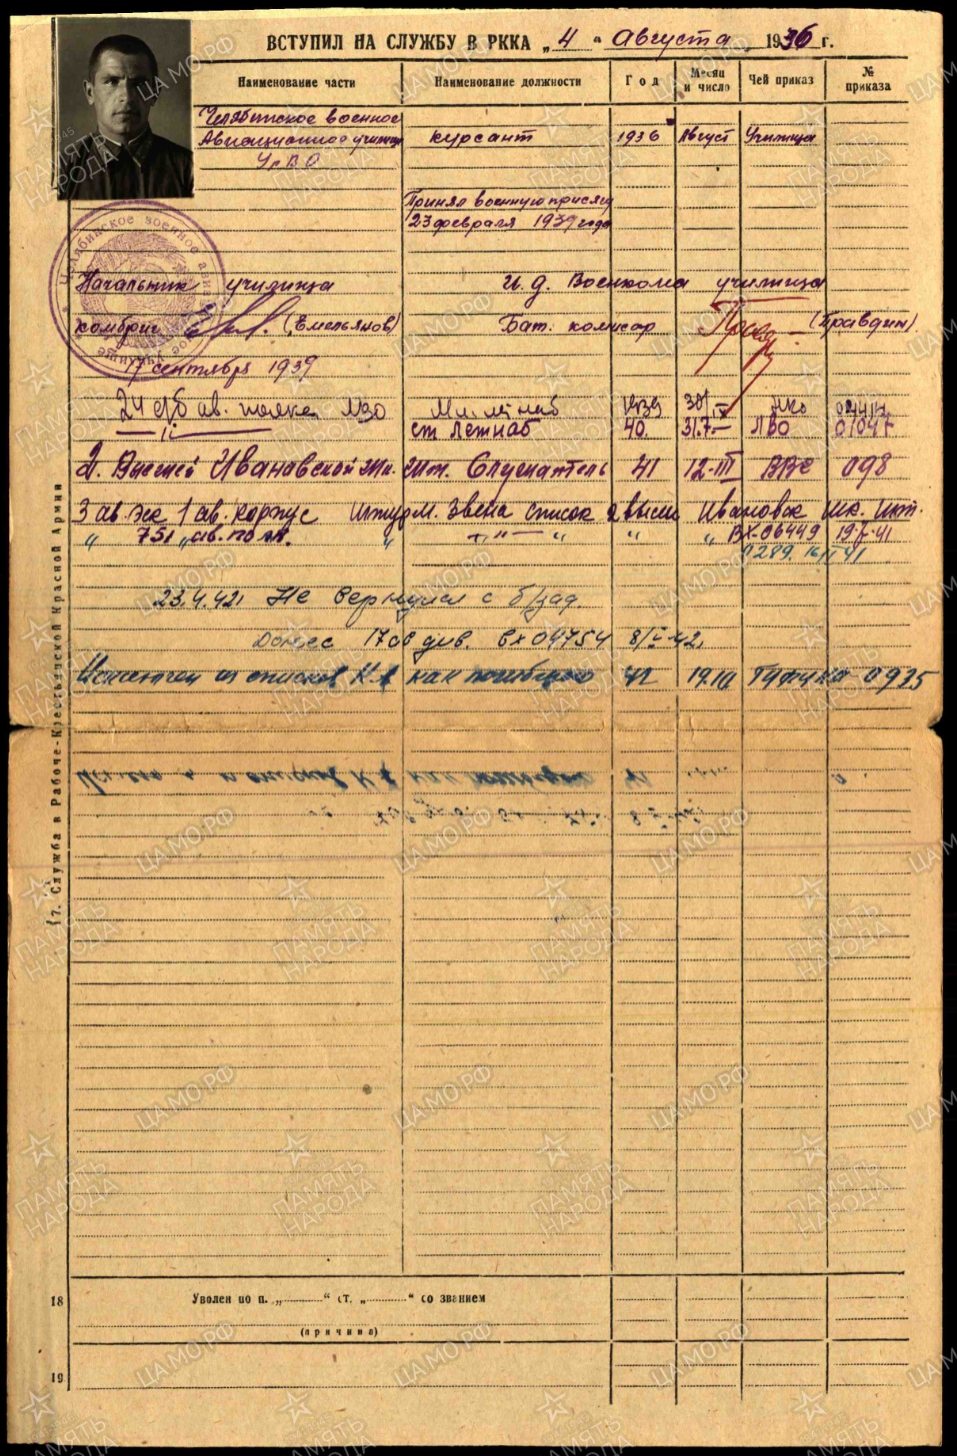 ВСТУПИЛ НА СЛУЖБУ В РККА „4“ августа 1936 г.
Наименование части Наименование должности Год Месяц и число Чей приказ № приказа
Челябинское военное
Авиационное училище курсант 1936 Август Училища
УрВО
Принял военную присягу
23 февраля 1939 года
Начальник училища И.д. Военкома училища
комбриг (Емельянов) Бат. комисар (Правдин).
17 сентября 1939
24 с/б ав. полка МВО Мл. летнаб 1939 30/IX НКО 04414
ст летнаб 40. 31.7. ЛВО 01047
2. Высшей Ивановской Шк. Шт. Слушатель 41 12-III ВВС 098
3 ав. эск 1 ав. корпус штурм. звена список 2 высш Ивановск шк. шт.
„ 751 „ ав. полк. „ „ „ „ ВХ-06449 19.7.41
п 289. 16/II 41
23.4.42г Не вернулся с б/зад.
Донес 17 ав див. вх 04754 8/V-42г
Исключен из списков К.А как погибший 42 19.10 ГУФУКА 0935
17. Служба в Рабоче-Крестьянской Красной Армии
18 Уволен по п. „ “ ст. „ “ со званием
(причина)
19
Челябинское военное
ЦАМО.РФ
ПАМЯТЬ НАРОДА